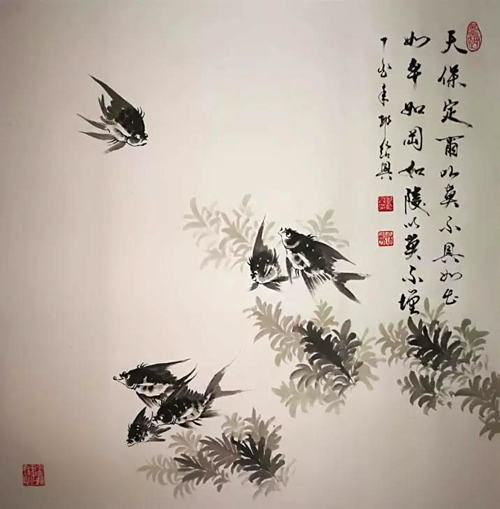 天保定爾以莫不興如山
如阜如岡如陵以莫不增
丁酉年 紹興